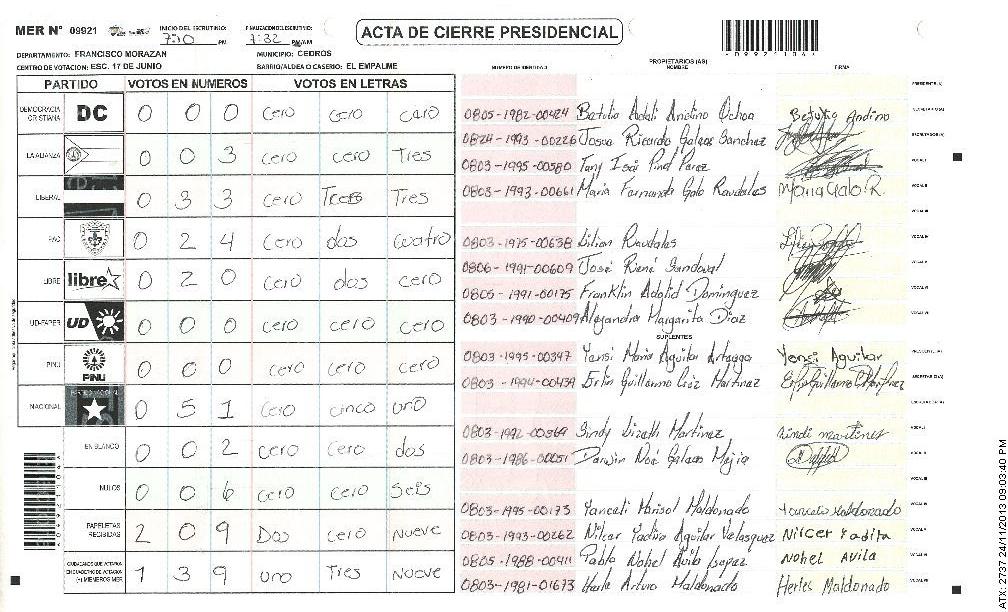 MER Nº 09921
INICIO DEL ESCRUTINIO: 7:10 PM
FINALIZACION ESCRUTINIO: 7:32 PM/AM
ACTA DE CIERRE PRESIDENCIAL
DEPARTAMENTO: FRANCISCO MORAZAN
MUNICIPIO: CEDROS
CENTRO DE VOTACION: ESC. 17 DE JUNIO
BARRIO/ALDEA O CASERIO: EL EMPALME
PARTIDO VOTOS EN NUMEROS VOTOS EN LETRAS
DEMOCRACIA CRISTIANA DC 0 0 0 cero cero cero
LA ALIANZA 0 0 3 cero cero Tres
LIBERAL 0 3 3 cero Tres Tres
PAC 0 2 4 Cero dos cuatro
LIBRE libre 0 2 0 cero dos cero
UD-FAPER UD 0 0 0 cero cero cero
PINU PINU 0 0 0 cero cero cero
NACIONAL 0 5 1 cero cinco uno
EN BLANCO 0 0 2 cero cero dos
NULOS 0 0 6 cero cero Seis
PAPELETAS RECIBIDAS 2 0 9 Dos cero nueve
CIUDADANOS QUE VOTARON EN CUADERNO DE VOTACION (+) MIEMBROS MER 1 3 9 uno Tres Nueve
NUMERO DE IDENTIDAD
PROPIETARIOS (AS)
NOMBRE
FIRMA
0805-1982-00424 Andino Ochoa Andino
0824-1993-00226 Josue Ricardo Galeas Sanchez
0803-1995-00580 Tany Isai
0803-1993-00661 Maria Fernanda Galo Raudales Maria Galo R.
0803-1975-00638 Lilian Raudales
0806-1991-00609 José René Sandoval
0805-1991-00175 Franklin Adolid Dominguez
0803-1990-00409 Alejandra Margarita Diaz
SUPLENTES
0803-1995-00347 Yensi Maria Aguilar Yensi Aguilar
0803-1994-00439 Guillermo Martinez
0803-1992-00369 Sindy Lizeth Martinez Sindi martines
0803-1986-00051 Darwin Noé Galeas Mejia
0803-1995-00173 Yanceli Marisol Maldonado Yanceli Maldonado
0803-1993-00262 Nilcer Yadira Aguilar Velasquez Nilcer Yadira
0805-1988-00411 Pablo Nohel Avila Lopez Nohel Avila
0803-1981-01673 Arturo Maldonado Herles Maldonado
ATX 2737 24/11/2013 09:03:40 PM